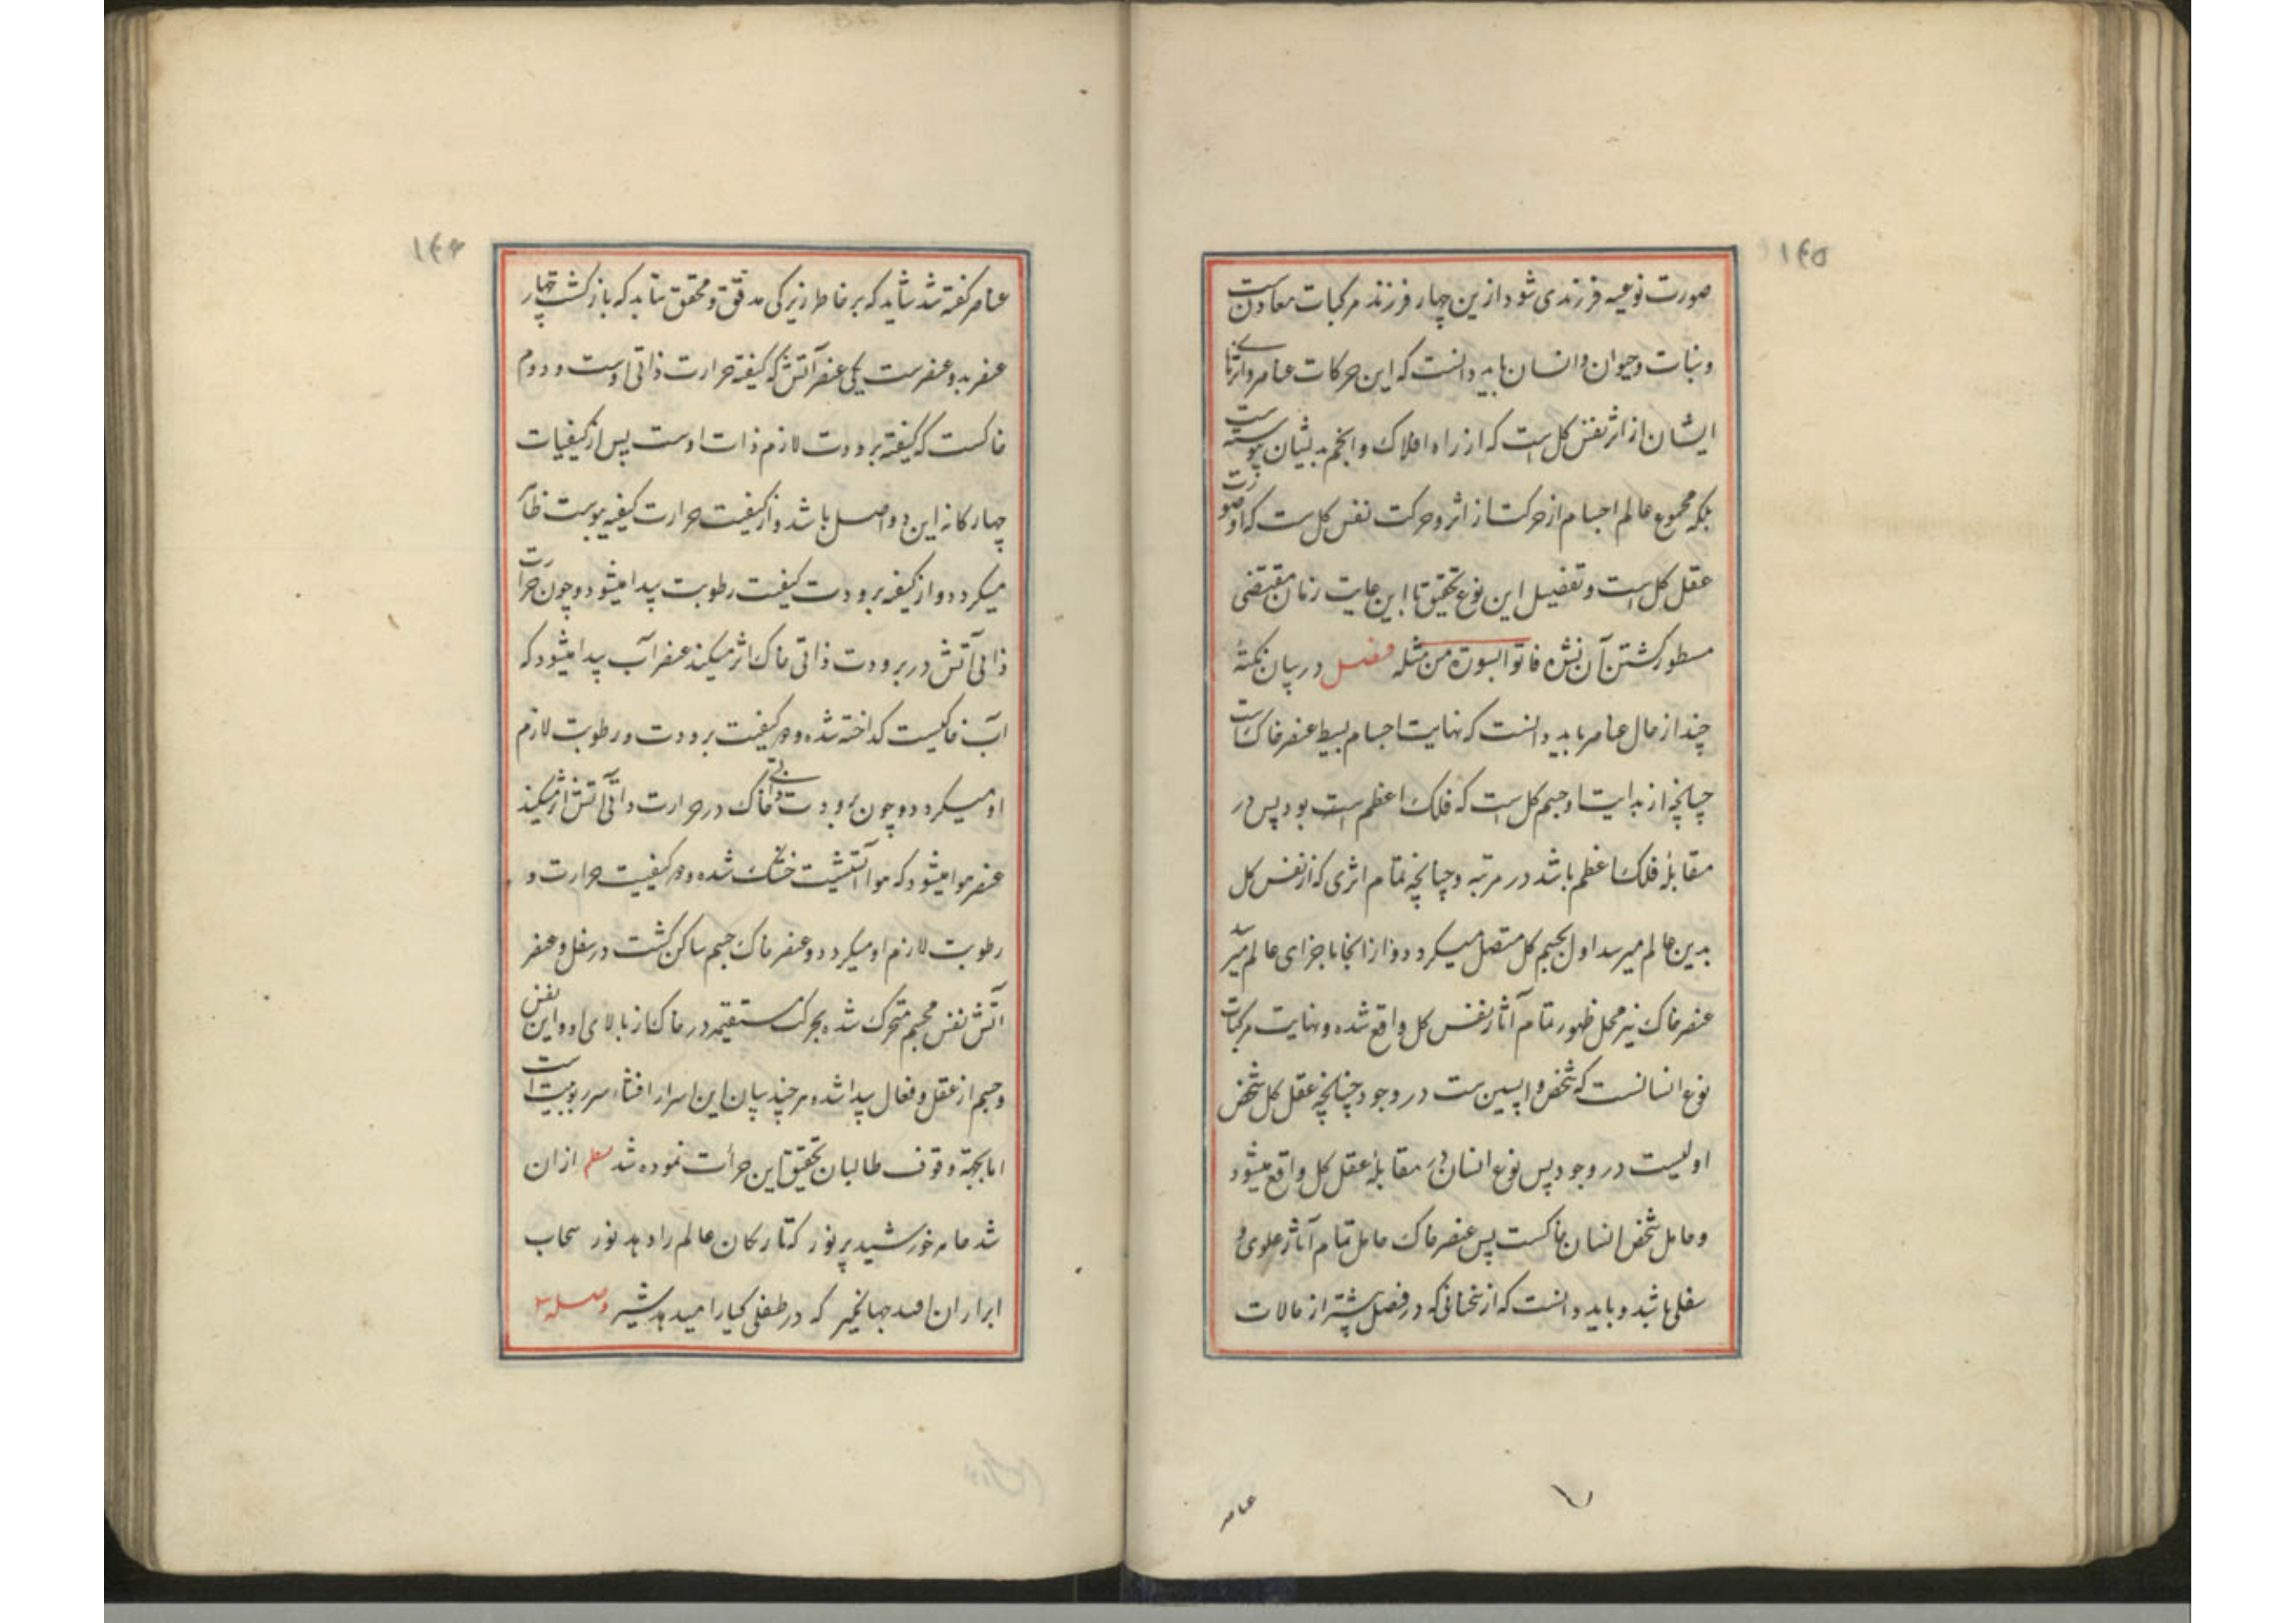 ۱۴۵
صورت نوعیه فرزندی شود ازین چهار فرزند مرکبات معادنست
و نبات و حیوان و انسان باید دانست که این حرکات عناصر و اثرهای
ایشان از اثر نفس کل است که از راه افلاک و انجم بدیشان پیوسته است
بلکه مجموع عالم اجسام از حرکت از اثر و حرکت نفس کل ست که او صورت
عقل کل است و تفضیل این نوع تحقیق تا این غایت زمان مقتضی
مسطور کشتن آن نشده فاتوا بسورة من مثله فصل در بیان نکتهٔ
چند از حال عناصر باید دانست که نهایت اجسام بسیط عنصر خاک است
چنانچه از بدایت او جسم کل است که فلک اعظم است بود پس در
مقابلهٔ فلک اعظم باشد در مرتبه و چنانچه تمام اثری که از نفس کل
بدین عالم میرسد اول بجسم کل متصل میکردد و از انجا باجزای عالم میرسد
عنصر خاک نیز محل ظهور تمام آثار نفس کل واقع شده و نهایت مرکبات
نوع انسانست که شخص واپسین ست در وجود چنانچه عقل کل شخص
اولیست در وجود پس نوع انسان در مقابلهٔ عقل کل واقع میشود
و حامل شخص انسان خاکست پس عنصر خاک حامل تمام آثار علوی و
سفلی باشد و باید دانست که از سخنانی که در فصل پیشتر از حالات
عناصر
۱۴۶
عناصر کفته شد شاید که بر خاطر زیرکی مدقق و محقق تابد که بازکشت چهار
عنصر بدو عنصرست یکی عنصر آتش که کیفیة حرارت ذاتی اوست و دوم
خاکست که کیفیة برودت لازم ذات اوست پس از کیفیات
چهارکانه این دو اصل باشد و از کیفیت حرارت کیفیه یبوست ظاهر
میکردد و از کیفیه برودت کیفیت رطوبت پیدا میشود و چون حرارت
ذاتی آتش در برودت ذاتی خاک اثر میکند عنصر آب پیدا میشود که
آب خاکیست کداخته شده و در کیفیت برودت و رطوبت لازم
او میکردد و چون برودت ذاتی خاک در حرارت ذاتی آتش اثر میکند
عنصر هوا میشود که هوا آتشیست خنک شده و در کیفیت حرارت و
رطوبت لازم او میکردد و عنصر خاک جسم ساکن کشت در سفل و عنصر
آتش نفس مجسم متحرک شده بحرکت مستقیمه در خاک از بالای او و این نفس
و جسم از عقل و فعال پیدا شده هر چند بیان این اسرار افشاء سر ربوبیت است
اما بجهة وقوف طالبان تحقیق این جرأت نموده شد نظم ازان
شد ماه خورشید پر نور که تاریکان عالم را دهد نور سحاب
ابر ازان افتد جهانگیر که در طفلی کیا را میدهد شیر وصله